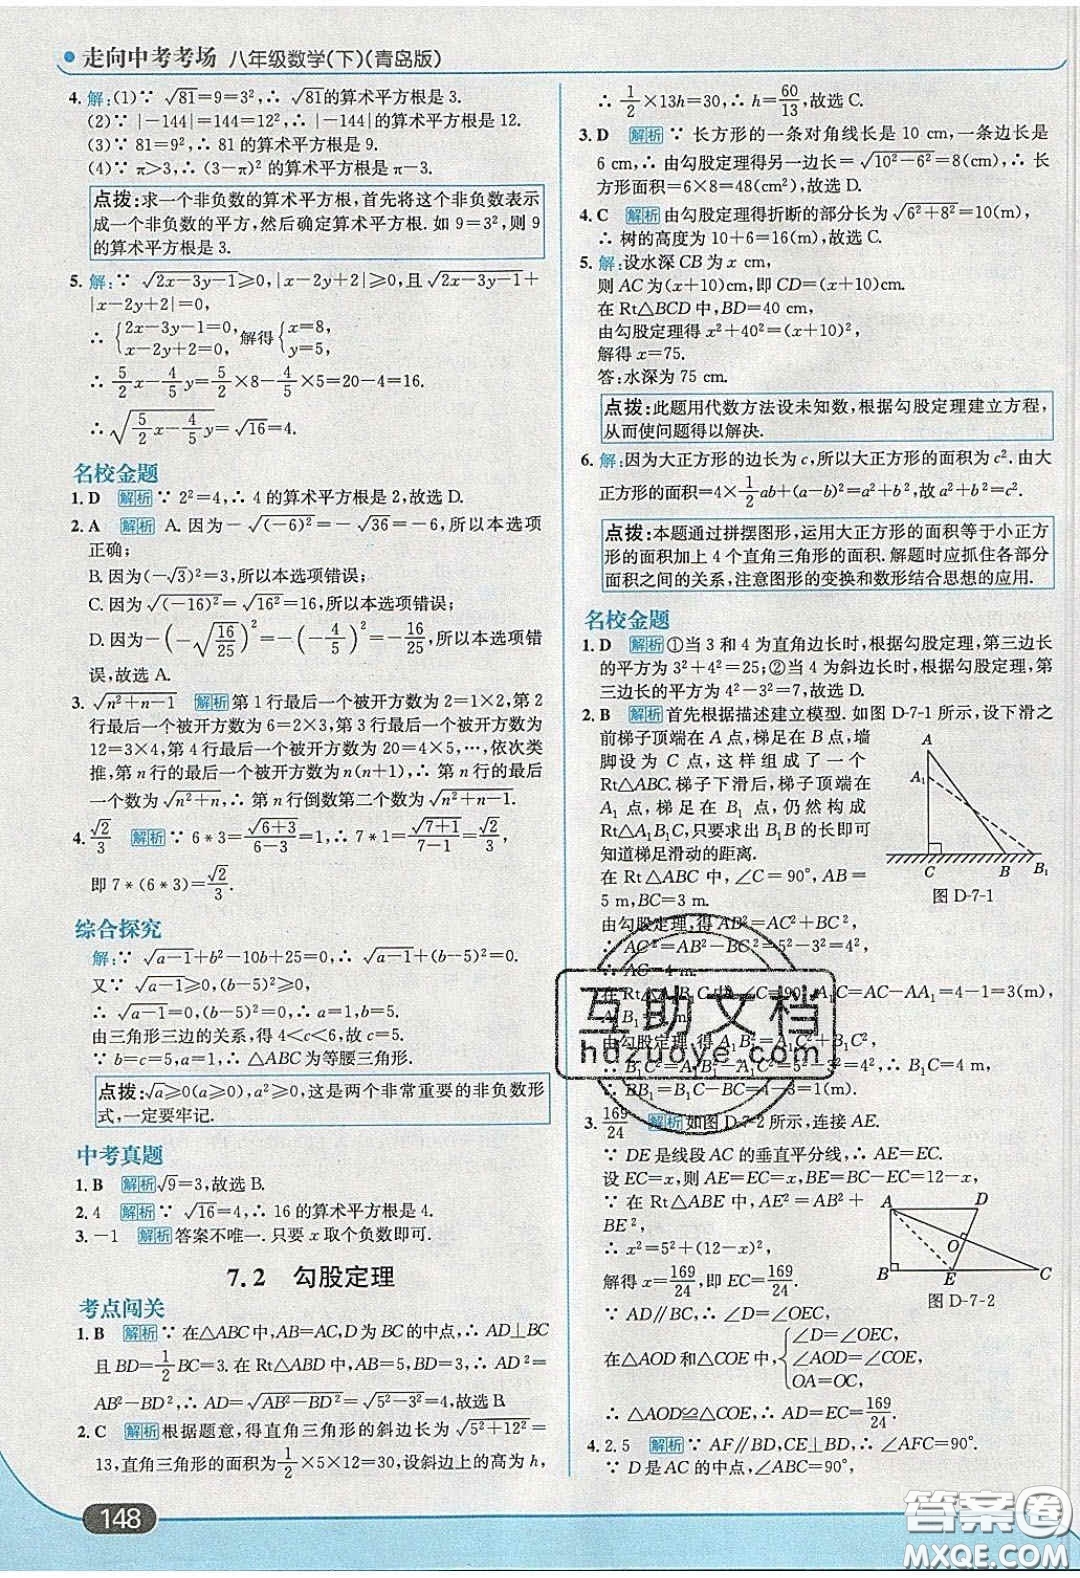 走向中考考场 八年级数学(下)(青岛版)
4. 解:(1)∵ √81=9=3²,∴ √81的算术平方根是 3.
(2)∵ |-144|=144=12²,∴ |-144|的算术平方根是 12.
(3)∵ 81=9²,∴ 81 的算术平方根是 9.
(4)∵ π>3,∴ (3-π)² 的算术平方根是 π-3.
点拨:求一个非负数的算术平方根,首先将这个非负数表示
成一个非负数的平方,然后确定算术平方根.如 9=3²,则 9
的算术平方根是 3.
5. 解:∵ √(2x-3y-1)≥0,|x-2y+2|≥0,且√(2x-3y-1)+
|x-2y+2|=0,
∴ {2x-3y-1=0, x-2y+2=0, 解得{x=8, y=5,
∴ 5/2x-4/5y=5/2×8-4/5×5=20-4=16.
∴ √(5/2x-4/5y)=√16=4.
名校金题
1. D 解析 ∵ 2²=4,∴ 4 的算术平方根是 2,故选 D.
2. A 解析 A. 因为-√(-6)²=-√36=-6,所以本选项
正确;
B. 因为(-√3)²=3,所以本选项错误;
C. 因为√(-16)²=√16²=16,所以本选项错误;
D. 因为-(-√(16/25))²=-(-4/5)²=-16/25,所以本选项错
误,故选 A.
3. √(n²+n-1) 解析 第 1 行最后一个被开方数为 2=1×2,第 2
行最后一个被开方数为 6=2×3,第 3 行最后一个被开方数为
12=3×4,第 4 行最后一个被开方数为 20=4×5,…,依次类
推,第 n 行的最后一个被开方数为 n(n+1),∴ 第 n 行的最后
一个数为√(n²+n),∴ 第 n 行倒数第二个数为√(n²+n-1).
4. √2/3 解析 ∵ 6*3=√(6+3)/(6-3)=1,∴ 7*1=√(7+1)/(7-1)=√2/3,
即 7*(6*3)=√2/3.
综合探究
解:∵ √(a-1)+b²-10b+25=0,∴ √(a-1)+(b-5)²=0.
又∵ √(a-1)≥0,(b-5)²≥0,
∴ √(a-1)=0,(b-5)²=0,∴ a=1,b=5.
由三角形三边的关系,得 4<c<6,故 c=5.
∵ b=c=5,a=1,∴ △ABC 为等腰三角形.
点拨:√a≥0(a≥0),a²≥0,这是两个非常重要的非负数形
式,一定要牢记.
中考真题
1. B 解析 √9=3,故选 B.
2. 4 解析 ∵ √16=4,∴ 16 的算术平方根是 4.
3. -1 解析 答案不唯一.只要 x 取个负数即可.
7.2 勾股定理
考点闯关
1. B 解析 ∵ 在△ABC 中,AB=AC,D 为 BC 的中点,∴ AD⊥BC
且 BD=1/2BC=3. 在 Rt△ABD 中,AB=5,BD=3,∴ AD²=
AB²-BD²,∴ AD=√(AB²-BD²)=√(5²-3²)=4,故选 B.
2. C 解析 根据题意,得直角三角形的斜边长为√(5²+12²)=
13,直角三角形的面积=1/2×5×12=30(cm²). 设斜边上的高为 h,
∴ 1/2×13h=30,∴ h=60/13,故选 C.
3. D 解析 ∵ 长方形的一条对角线长是 10 cm,一条边长是
6 cm,∴ 由勾股定理得另一边长=√(10²-6²)=8(cm),∴ 长
方形面积=6×8=48(cm²),故选 D.
4. C 解析 由勾股定理得折断的部分长为√(6²+8²)=10(m),
∴ 树的高度为 10+6=16(m),故选 C.
5. 解:设水深 CB 为 x cm,
则 AC 为(x+10)cm,即 CD=(x+10)cm.
在 Rt△BCD 中,BD=40 cm,
由勾股定理得 x²+40²=(x+10)²,
解得 x=75.
答:水深为 75 cm.
点拨:此题用代数方法设未知数,根据勾股定理建立方程,
从而使问题得以解决.
6. 解:因为大正方形的边长为 c,所以大正方形的面积为 c². 由大
正方形的面积=4×1/2ab+(a-b)²=a²+b²,故 a²+b²=c².
点拨:本题通过拼摆图形,运用大正方形的面积等于小正方
形的面积加上 4 个直角三角形的面积.解题时应抓住各部分
面积之间的关系,注意图形的变换和数形结合思想的应用.
名校金题
1. D 解析 ①当 3 和 4 为直角边长时,根据勾股定理,第三边长
的平方为 3²+4²=25;②当 4 为斜边长时,根据勾股定理,第
三边长的平方为 4²-3²=7,故选 D.
2. B 解析 首先根据描述建立模型. 如图 D-7-1 所示,设下滑之
前梯子顶端在 A 点,梯足在 B 点,墙
脚设为 C 点,这样组成了一个
Rt△ABC. 梯子下滑后,梯子顶端在
A₁ 点,梯足在 B₁ 点,仍然构成
Rt△A₁B₁C,只要求出 B₁B 的长即可
知道梯足滑动的距离.
在 Rt△ABC 中,∠C=90°,AB=
5 m,BC=3 m.
A
A₁
C B B₁
图 D-7-1
由勾股定理,得 AB²=AC²+BC²,
∴ AC²=AB²-BC²=5²-3²=4²,
∴ AC=4 m.
在 Rt△A₁B₁C 中,∠C=90°,A₁C=AC-AA₁=4-1=3(m),
由勾股定理,得 A₁B₁²=A₁C²+B₁C²,
∴ B₁C²=A₁B₁²-A₁C²=5²-3²=4²,∴ B₁C=4 m,
∴ BB₁=B₁C-BC=4-3=1(m).
3. 169/24 解析 如图 D-7-2 所示,连接 AE.
∵ DE 是线段 AC 的垂直平分线,∴ AE=EC.
设 EC=x,则 AE=EC=x,BE=BC-EC=12-x,
∵ 在 Rt△ABE 中,AE²=AB²+
BE²,
∴ x²=5²+(12-x)²,
解得 x=169/24,即 EC=169/24.
A D
O
B E C
图 D-7-2
∵ AD∥BC,∴ ∠D=∠OEC,
在△AOD 和△COE 中,{∠D=∠OEC, ∠AOD=∠COE, OA=OC,
∴ △AOD≌△COE,∴ AD=EC=169/24.
4. 2.5 解析 ∵ AF∥BD,CE⊥BD,∴ ∠AFC=90°.
∵ D 是 AC 的中点,
148
互助文档
hdzuoye.com
答案圈
MXQE.COM